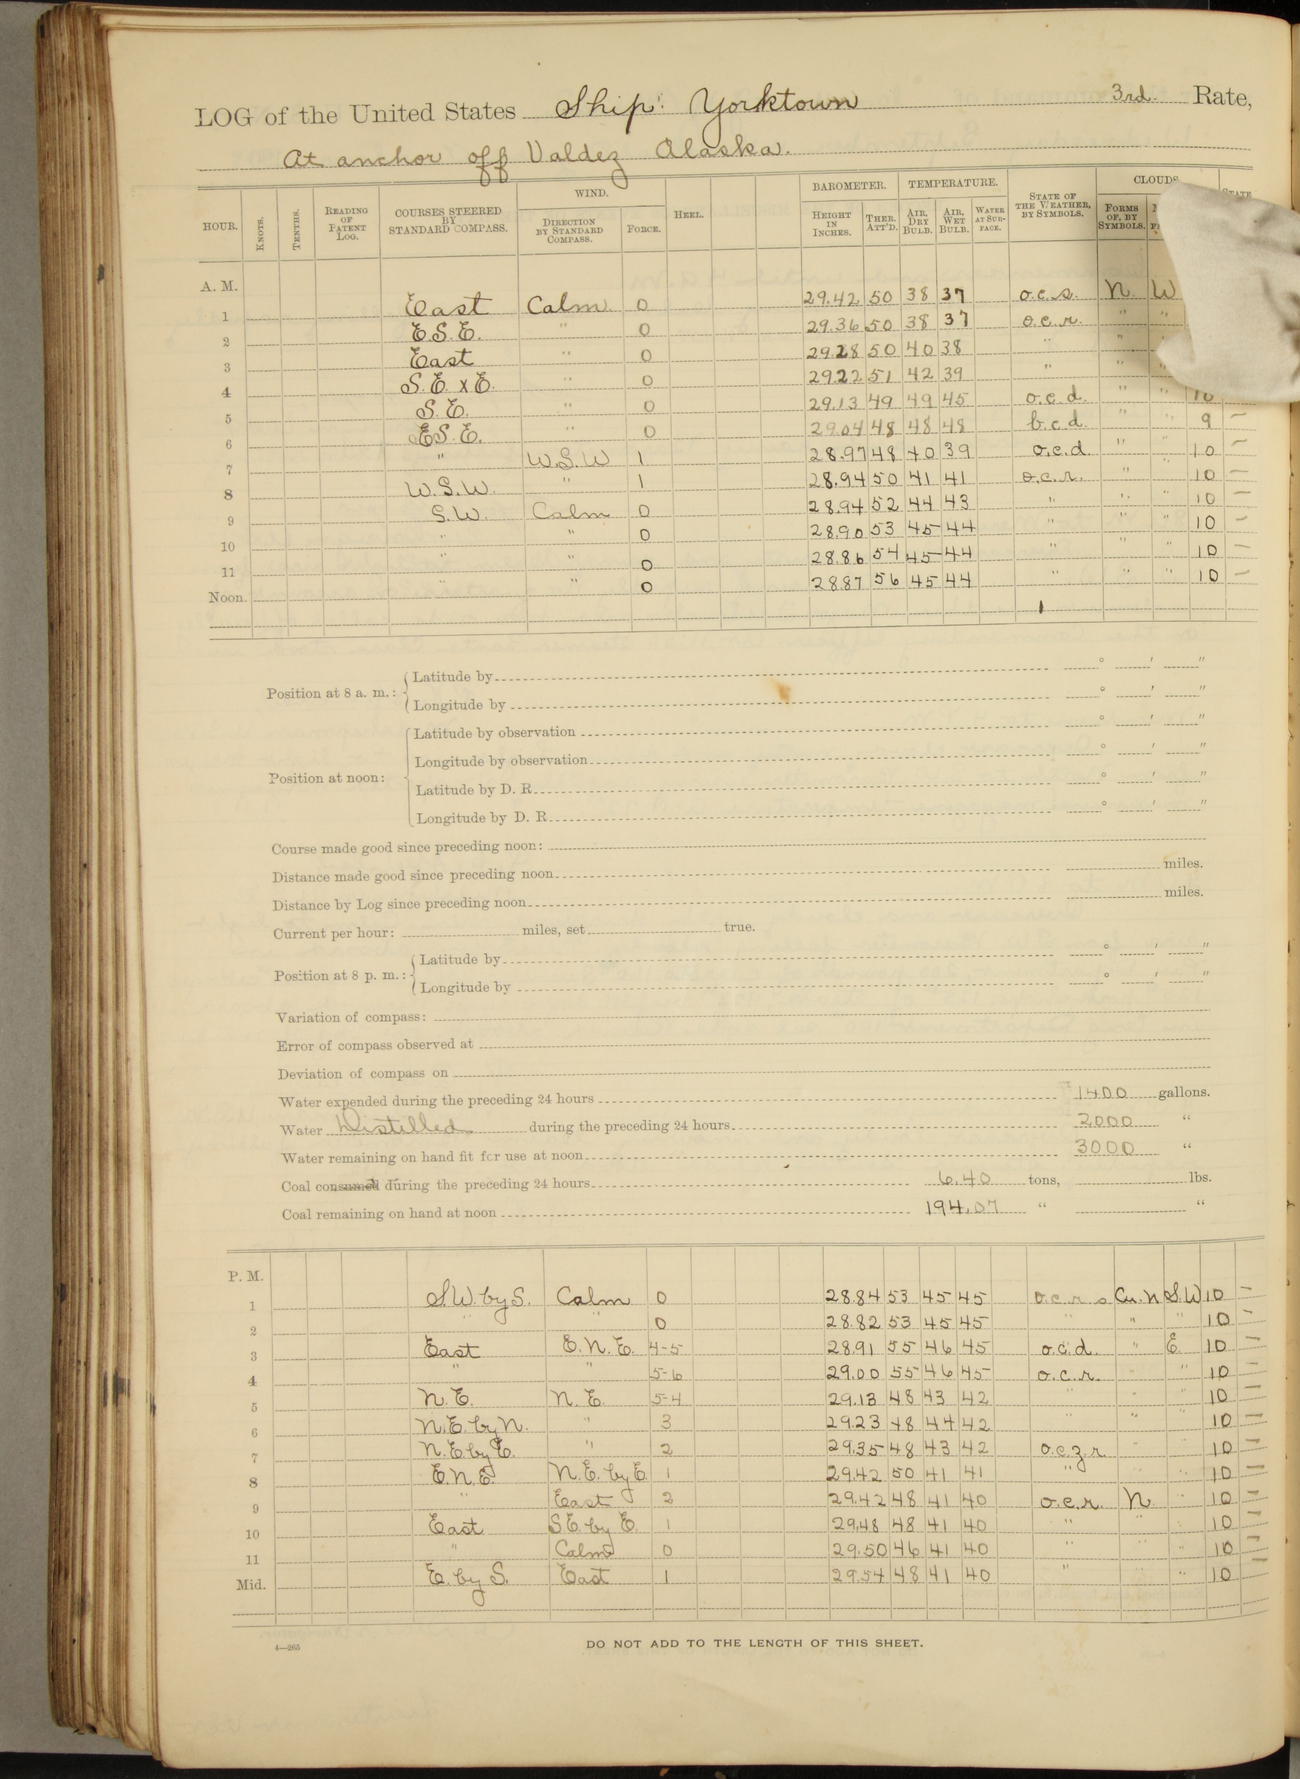 LOG of the United States Ship Yorktown 3rd. Rate,
At anchor off Valdez Alaska.
HOUR. KNOTS. TENTHS. READING OF PATENT LOG. COURSES STEERED BY STANDARD COMPASS. WIND. DIRECTION BY STANDARD COMPASS. FORCE. HEEL. BAROMETER. HEIGHT IN INCHES. THER. ATT'D. TEMPERATURE. AIR, DRY BULB. AIR, WET BULB. WATER AT SURFACE. STATE OF THE WEATHER, BY SYMBOLS. CLOUDS FORMS OF, BY SYMBOLS.
A. M.
1 East Calm 0 29.42 50 38 37 o.c.s. N. W
2 E.S.E. " 0 29.36 50 38 37 o.c.r. " "
3 East " 0 29.28 50 40 38 " " "
4 S.E. x E. " 0 29.22 51 42 39 " " "
5 S.E. " 0 29.13 49 49 45 o.c.d. " " 10
6 E.S.E. " 0 29.04 48 48 48 b.c.d. " " 9 —
7 " W.S.W 1 28.97 48 40 39 o.c.d. " " 10 —
8 W.S.W. " 1 28.94 50 41 41 o.c.r. " 10 —
9 S.W. Calm 0 28.94 52 44 43 " " " 10 —
10 " " 0 28.90 53 45 44 " " " 10 —
11 " " 0 28.86 54 45 44 " " " 10 —
Noon. " " 0 28.87 56 45 44 " " " 10 —
Position at 8 a. m.: Latitude by ° ′ ″
Longitude by ° ′ ″
Position at noon: Latitude by observation ° ′ ″
Longitude by observation ° ′ ″
Latitude by D. R. ° ′ ″
Longitude by D. R. ° ′ ″
Course made good since preceding noon:
Distance made good since preceding noon miles.
Distance by Log since preceding noon miles.
Current per hour: miles, set true.
Position at 8 p. m.: Latitude by ° ′ ″
Longitude by ° ′ ″
Variation of compass:
Error of compass observed at
Deviation of compass on
Water expended during the preceding 24 hours 1400 gallons.
Water Distilled during the preceding 24 hours 2000 "
Water remaining on hand fit for use at noon 3000 "
Coal consumed during the preceding 24 hours 6.40 tons, lbs.
Coal remaining on hand at noon 194.07 " "
P. M.
1 S.W. by S. Calm 0 28.84 53 45 45 o.c.r.s Cu.N S.W 10 —
2 " 0 28.82 53 45 45 " " " 10 —
3 East E.N.E. 4-5 28.91 55 46 45 o.c.d. " E. 10 —
4 " " 5-6 29.00 55 46 45 o.c.r. " " 10 —
5 N.E. N.E. 5-4 29.13 48 43 42 " " " 10 —
6 N.E. by N. " 3 29.23 48 44 42 " " " 10 —
7 N.E. by E. " 2 29.35 48 43 42 o.c.z.r. " " 10 —
8 E.N.E. N.E. by E. 1 29.42 50 41 41 " " " 10 —
9 " East 2 29.42 48 41 40 o.c.r. N " 10 —
10 East S.E. by E. 1 29.48 48 41 40 " " " 10 —
11 " Calm 0 29.50 46 41 40 " " " 10 —
Mid. E. by S. East 1 29.54 48 41 40 " " " 10 —
4—265 DO NOT ADD TO THE LENGTH OF THIS SHEET.